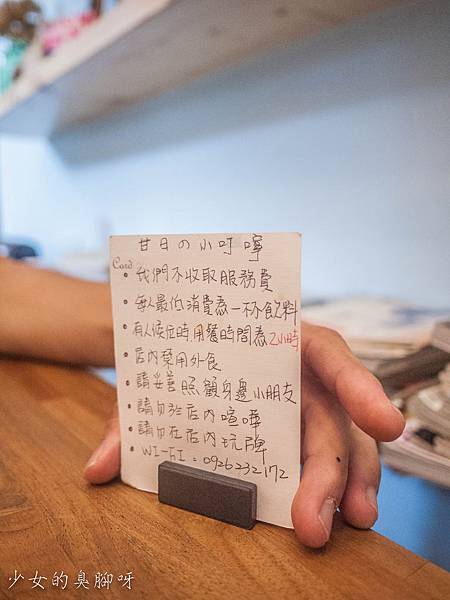 甘日の小叮嚀
Card
• 我們不收取服務費
• 每人最低消費為一杯飲料
• 有人候位時,用餐時間為2小時
• 店內禁用外食
• 請妥善照顧身邊小朋友
• 請勿於店內喧嘩
• 請勿在店內玩牌
• WI-FI:0926232172
少女的臭腳呀